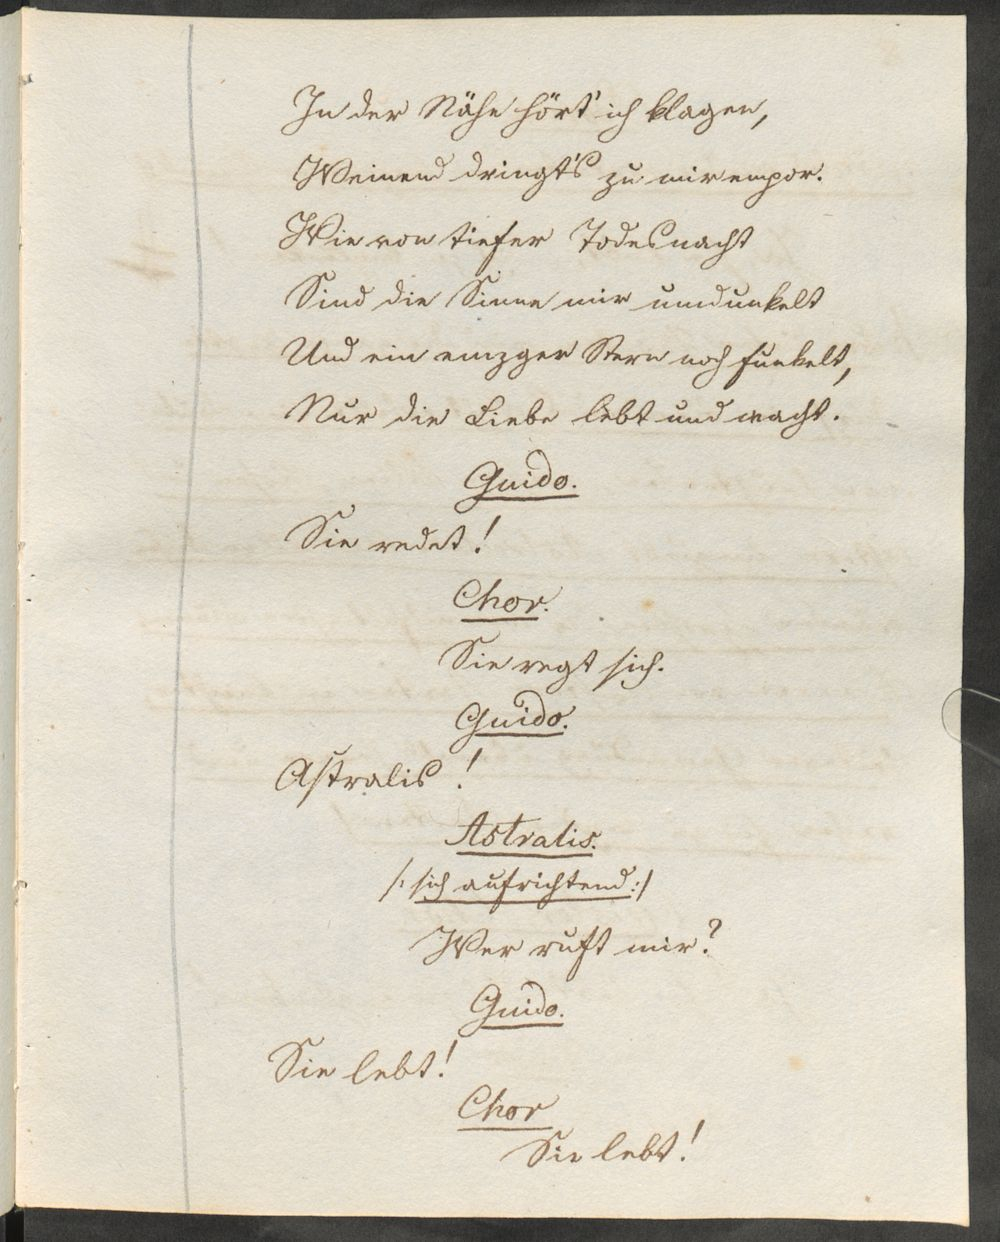 In der Nähe hört' ich klagen,
Weinend dringt's zu mir empor.
Wie von tiefer Todesnacht
Sind die Sinne mir umdunkelt
Und ein einzger Stern noch funkelt,
Nur die Liebe lebt und wacht.
Guido.
Sie redet!
Chor.
Sie regt sich.
Guido.
Astralis!
Astralis.
/: sich aufrichtend :/
Wer ruft mir?
Guido.
Sie lebt!
Chor
Sie lebt!